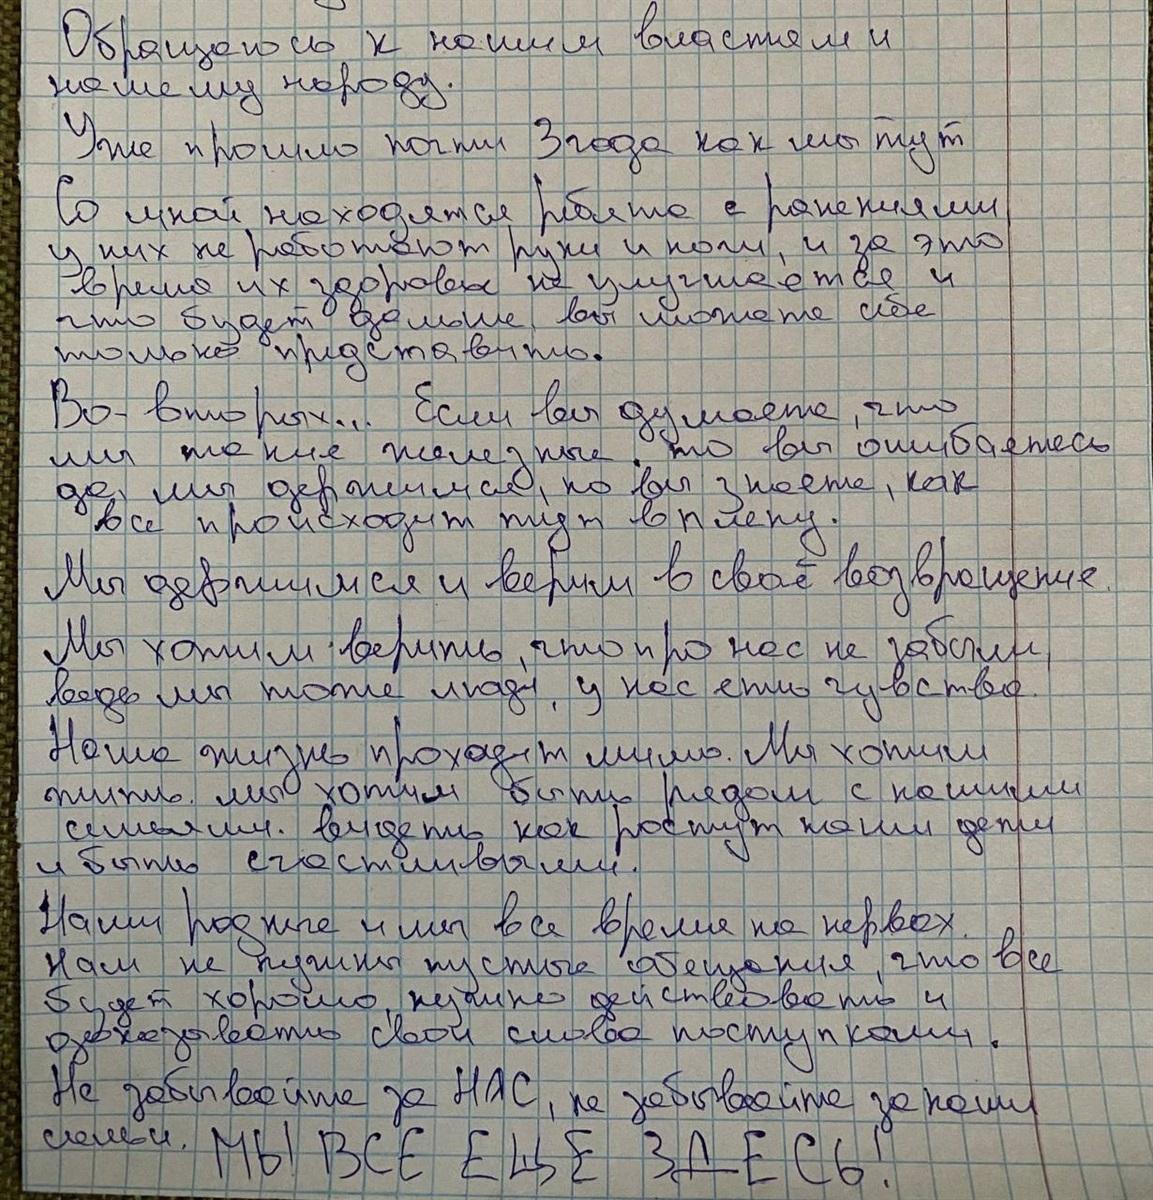 Обращаюсь к нашим властям и
нашему народу.
Уже прошло почти 3 года как мы тут
Со мной находятся ребята с ранениями
у них не работают руки и ноги, и за это
время их здоровье не улучшается и
что будет дальше, вы можете себе
только представить.
Во-вторых... Если вы думаете, что
мы такие железные, то вы ошибаетесь
да, мы держимся, но вы знаете, как
все происходит тут в плену.
Мы держимся и верим в своё возвращение.
Мы хотим верить, что про нас не забыли,
ведь мы тоже люди, у нас есть чувства.
Наша жизнь проходит мимо. Мы хотим
жить. мы хотим быть рядом с нашими
семьями. видеть как ростут наши дети
и быть счастливыми.
Наши родные и мы все время на нервах.
Нам не нужны пустые обещания, что все
будет хорошо, нужно действовать и
доказывать свои слова поступками.
Не забывайте за НАС, не забывайте за наши
семьи. МЫ ВСЕ ЕЩЕ ЗДЕСЬ!